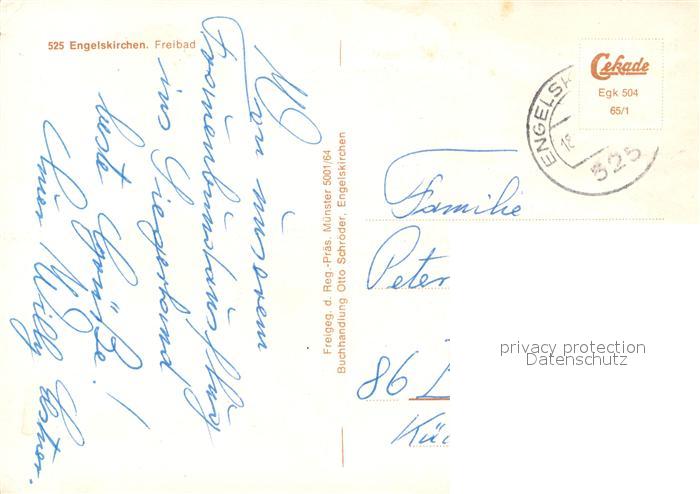 525 Engelskirchen. Freibad
Von unserem
ins Siegerland
beste Grüße!
Willy
Freigeg. d. Reg.-Präs. Münster 5001/64
Buchhandlung Otto Schröder, Engelskirchen
Cekade
Egk 504
65/1
ENGELSK
525
Familie
Peter
86
privacy protection
Datenschutz